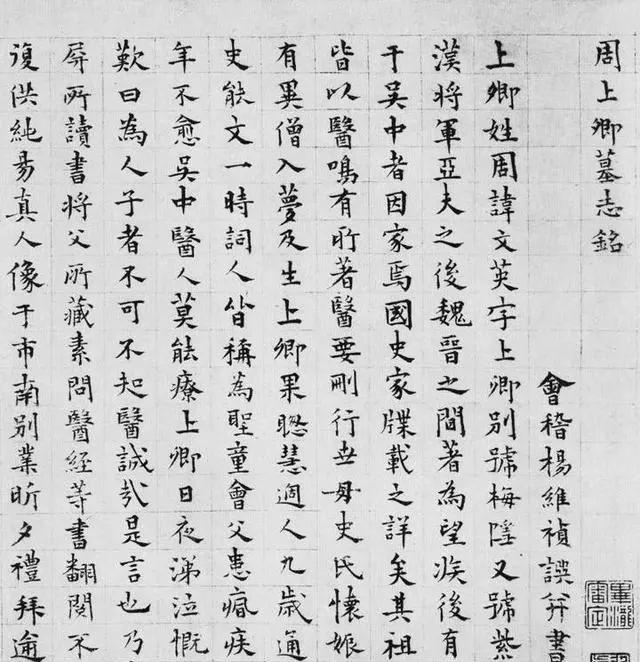 周上卿墓志銘
會稽楊維禎譔并書
上卿姓周諱文英字上卿別號梅隱又號紫
漢將軍亞夫之後魏晉之間著為望族後有
于吳中者因家焉國史家牒載之詳矣其祖
皆以醫鳴有所著醫要刪行世母史氏懷娠
有異僧入夢及生上卿果聰慧過人九歲通
史能文一時詞人皆稱為聖童會父患痼疾
年不愈吳中醫人莫能療上卿日夜涕泣慨
歎曰為人子者不可不知醫誠哉是言也乃
屏所讀書將父所藏素問醫經等書翻閱不
復供純昜真人像于市南別業昕夕禮拜逾